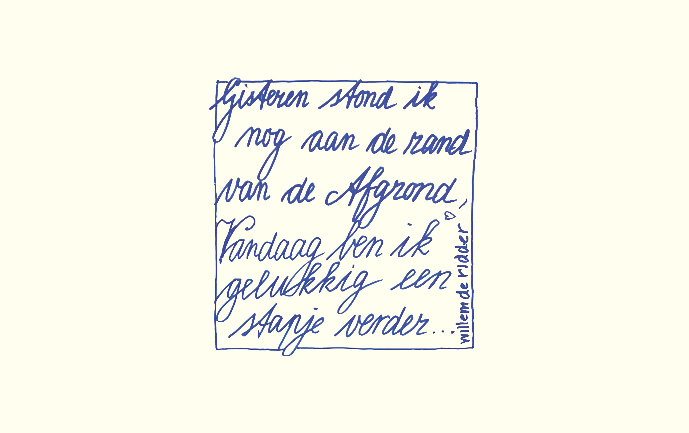 Gisteren stond ik
nog aan de rand
van de Afgrond,
Vandaag ben ik
gelukkig een
stapje verder...
willem de ridder